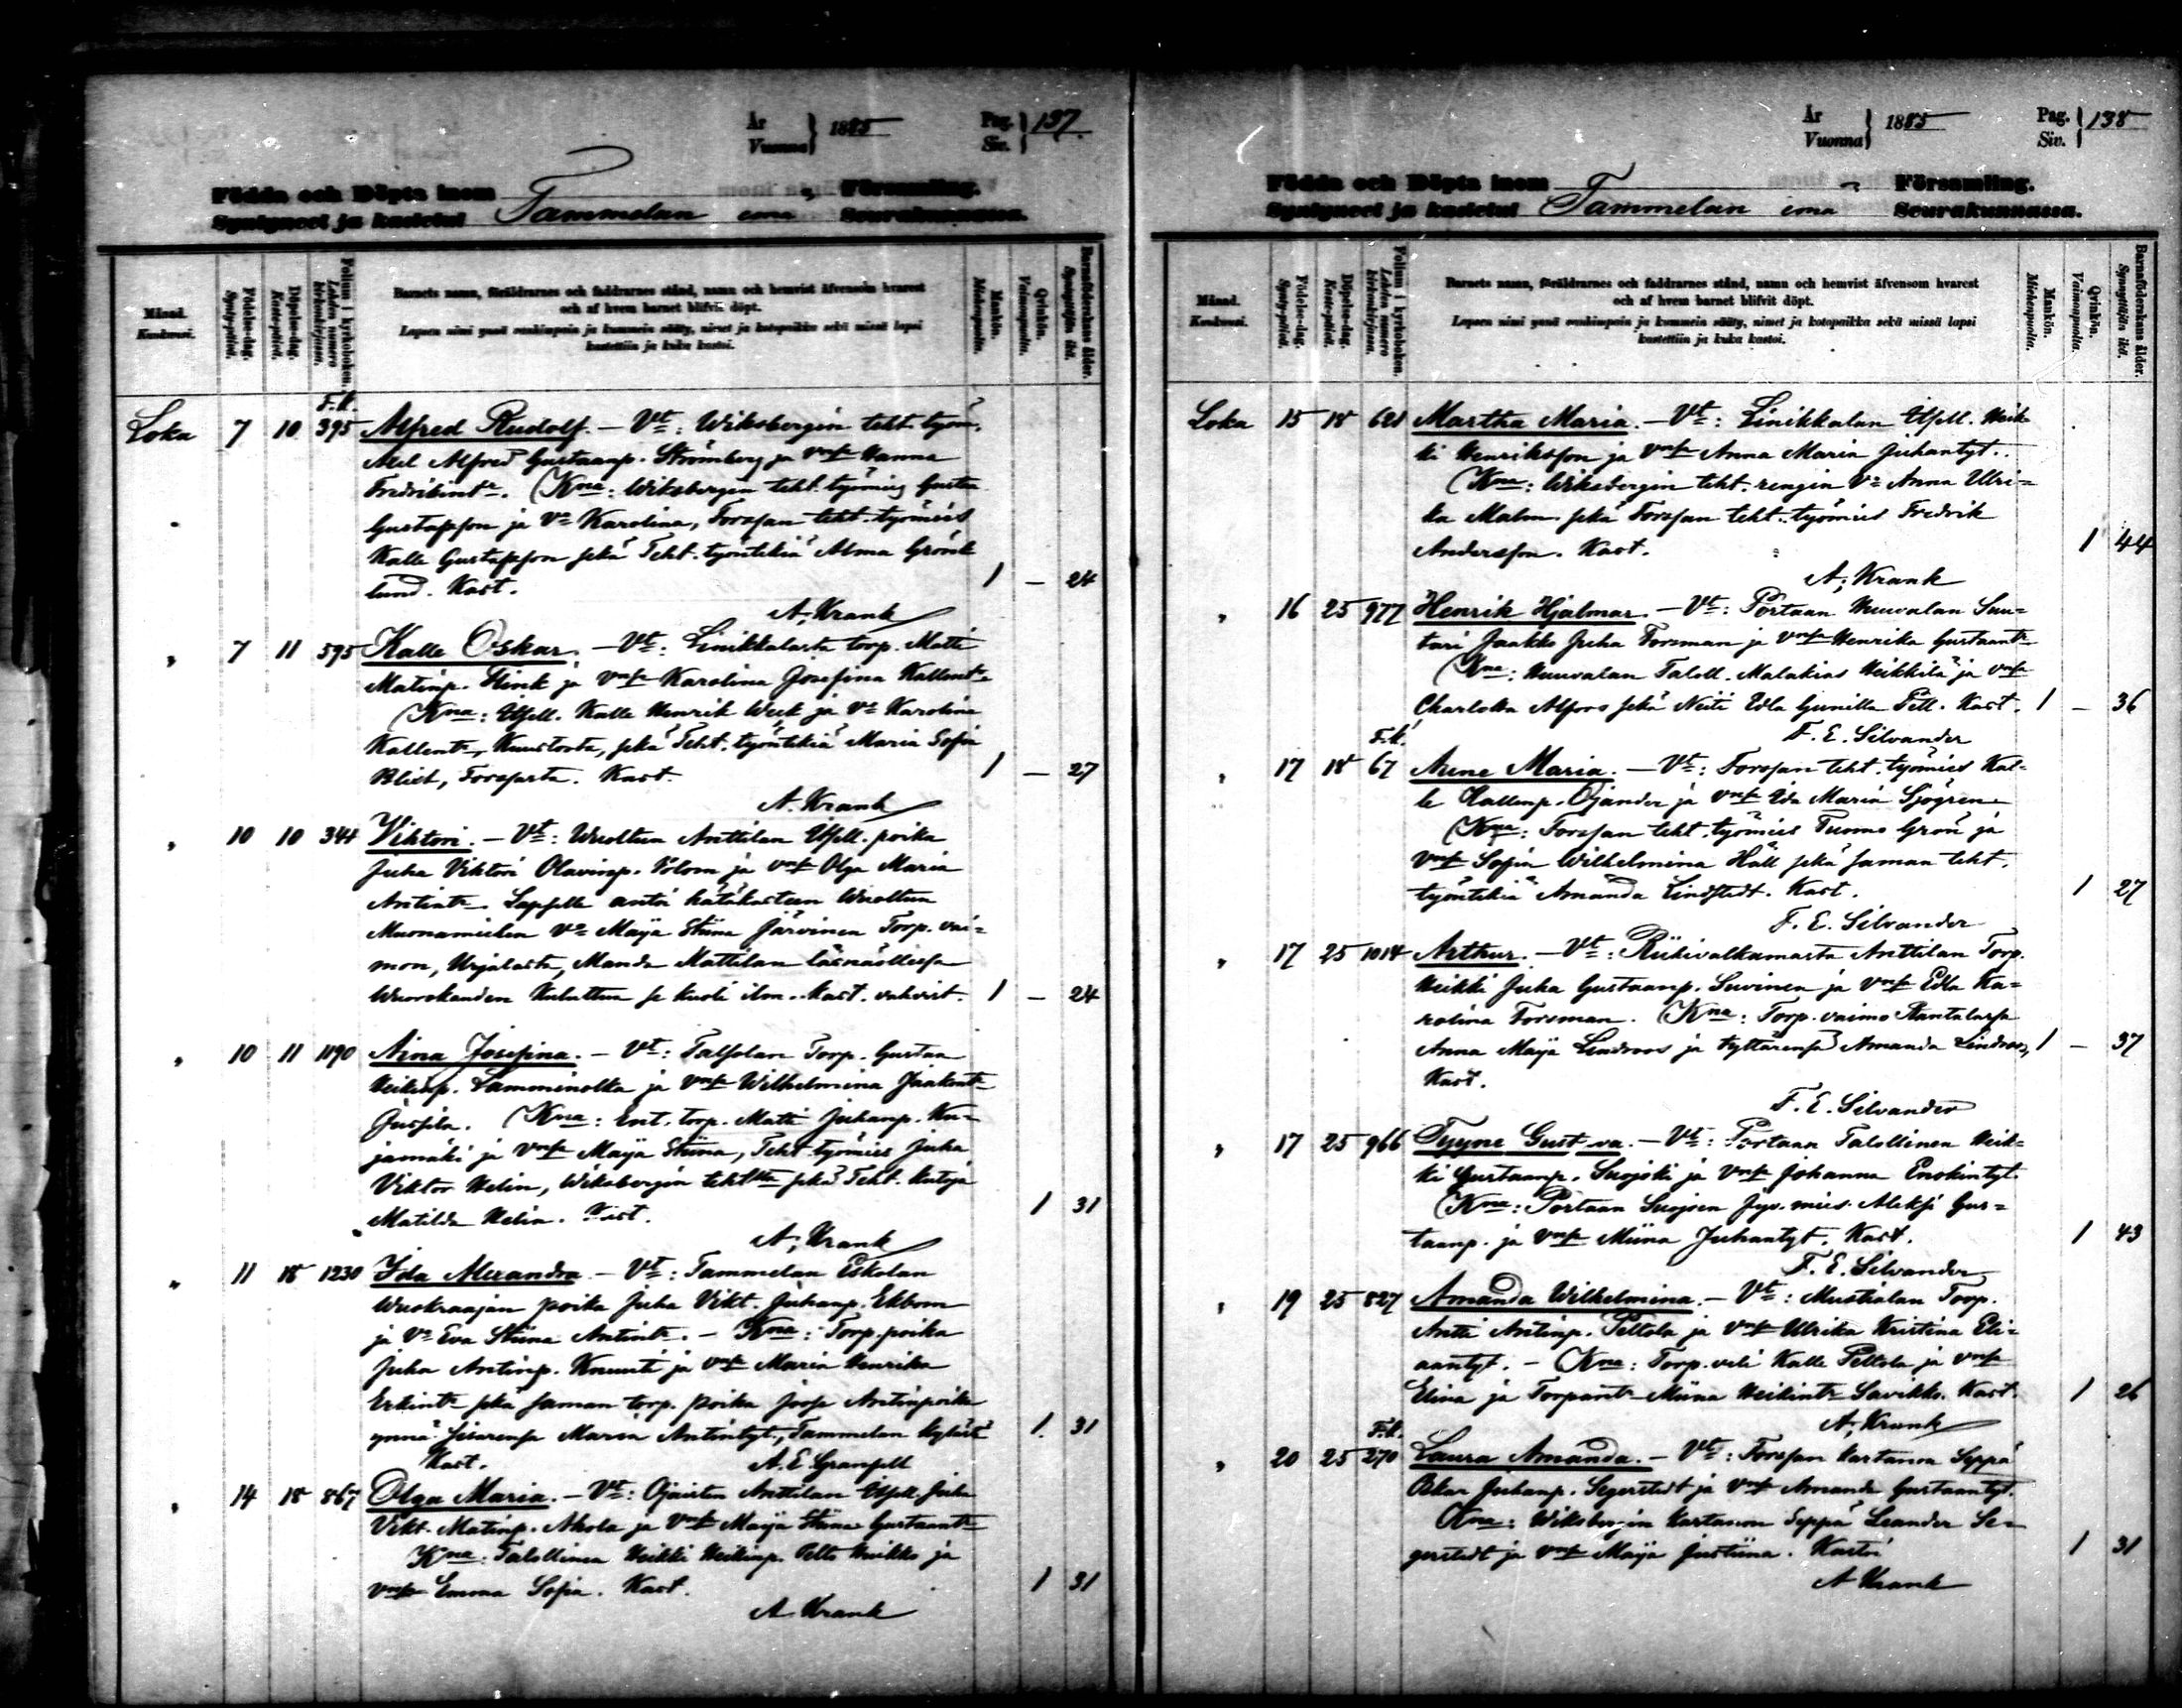 År
Vuonna } 1885
Pag.
Siv. } 137.
Födda och Döpta inom
Syntyneet ja kastetut Tammelan ema
Församling.
Seurakunnassa.
Månad.
Kuukausi.
Födelse-dag.
Synty-päivä.
Döpelse-dag.
Kaste-päivä.
Folium i kyrkoboken.
Lehden numero kirkonkirjassa.
Barnets namn, föräldrarnes och faddrarnes stånd, namn och hemvist äfvensom hvarest
och af hvem barnet blifvit döpt.
Lapsen nimi ynnä vanhimpain ja kummein sääty, nimet ja kotopaikka sekä missä lapsi
kastettiin ja kuka kastoi.
Mankön.
Miehenpuolia.
Qvinkön.
Vaimonpuolia.
Barnaföderskans ålder.
Synnyttäjän ikä.
F.k.
Loka 7 10 395 Alfred Rudolf. — Vt: Wiksbergin teht. työm.
Axel Alfred Gustaanp. Strömberg ja vmsa Hanna
Fredrikintr. (Kna: Wiksbergin teht. työmies Gusta
Gustafsson ja Vo Karolina, Forssan teht. työmies
Kalle Gustafsson sekä Teht. työntekiä Alma Grönk
lund. Kast. 1 — 24
A. Krank
" 7 11 595 Kalle Oskar. — Vt: Linikkalasta torp. Matti
Matinp. Flink ja vmsa Karolina Josefina Kallentr.
(Kna: Itsell. Kalle Henrik Week ja Vo Karolina
Kallentr, Kuustosta, sekä Teht. työntekiä Maria Sofia
Blick, Forssasta. Kast. 1 — 27
A. Krank
" 10 10 344 Viktori. — Vt: Wuoltun Anttilan Itsell. poika
Juha Viktori Olavinp. ja vmsa Olga Maria
Antintr. Lapselle antoi hätäkasteen Wuoltun
Muonamiehen Vo Maija Stiina Järvinen Torp. vai=
mon, Urjalasta, Manda Mattilan läsnäollessa
Wuorokauden kuluttua se kuoli ilm. kast. vahvist. 1 — 24
" 10 11 1190 Aina Josefina. — Vt: Talsolan Torp. Gustaa
Heikinp. Lamminolka ja vmsa Wilhelmina Jaakontr
Jussila. (Kna: Ent. torp. Matti Juhanp. Ku=
jamäki ja vmsa Maija Stiina, Teht työmies Juha
Viktor Helin, Wiksbergin teht sekä Teht. kutoja
Matilda Helin. Kast. 1 31
A. Krank
" 11 18 1230 Ida Alexandra — Vt: Tammelan Eskolan
Wuokraajan poika Juha Vikt. Juhanp. Ekbom
ja Vo Eva Stiina Antintr. — Kna: Torp. poika
Juha Antinp. Knuuti ja vmsa Maria Henrika
Erkintr sekä saman torp. poika Joose Antinpoika
ynnä sisarensa Maria Antintyt., Tammelan kylästä 1. 31
Kast. A. E. Granfelt
" 14 18 867 Olga Maria. — Vt: Ojaisten Anttilan Itsell. Juha
Vikt. Matinp. Ahola ja vmsa Maija Stiina Gustaantr
Kna: Talollinen Heikki Heikinp. Pelto Huikko ja
vmsa Emma Sofia. Kast. 1 31
A. Krank
År
Vuonna } 1885
Pag.
Siv. } 138
Födda och Döpta inom
Syntyneet ja kastetut Tammelan ema
Församling.
Seurakunnassa.
Månad.
Kuukausi.
Födelse-dag.
Synty-päivä.
Döpelse-dag.
Kaste-päivä.
Folium i kyrkoboken.
Lehden numero kirkonkirjassa.
Barnets namn, föräldrarnes och faddrarnes stånd, namn och hemvist äfvensom hvarest
och af hvem barnet blifvit döpt.
Lapsen nimi ynnä vanhimpain ja kummein sääty, nimet ja kotopaikka sekä missä lapsi
kastettiin ja kuka kastoi.
Mankön.
Miehenpuolia.
Qvinkön.
Vaimonpuolia.
Barnaföderskans ålder.
Synnyttäjän ikä.
Loka 15 18 621 Martha Maria. — Vt: Linikkalan Itsell. Heik
ki Henriksson ja vmsa Anna Maria Juhantyt.
(Kna: Wiksbergin teht. rengin Vo Anna Ulri=
ka Malm sekä Forssan teht. työmies Fredrik
Andersson. Kast. 1 44
A. Krank
" 16 25 977 Henrik Hjalmar. — Vt: Portaan Huuvalan Suu=
tari Jaakko Juha Forsman ja vmsa Henrika Gustaantr
(Kna: Huuvalan Taloll. Malakias Heikkilä ja vmsa
Charlotta Alfors sekä Neiti Edla Gunilla Pell. Kast. 1 — 36
F. E. Silvander
F.k.
" 17 18 67 Aune Maria. — Vt: Forssan teht. työmies Kal=
le Kallenp. Ojander ja vmsa Ida Maria Sjögren
(Kna: Forssan teht. työmies Tuomo Grön ja
vmsa Sofia Wilhelmina Häll sekä saman teht.
työntekiä Amanda Lindstedt. Kast. 1 27
F. E. Silvander
" 17 25 1014 Arthur. — Vt: Riihivalkamasta Anttilan Torp.
Heikki Juha Gustaanp. Suvinen ja vmsa Edla Ka=
rolina Forsman. (Kna: Torp. vaimo Rantalassa
Anna Maija Lindroos ja tyttärensä Amanda Lindroos, 1 — 37
Kast.
F. E. Silvander
" 17 25 966 Tyyne Gustava. — Vt: Portaan Talollinen Heik=
ki Gustaanp. Suojoki ja vmsa Johanna Enokintyt.
(Kna: Portaan Suojoen Syt. mies. Aleksi Gus=
taanp. ja vmsa Miina Juhantyt. Kast. 1 43
F. E. Silvander
" 19 25 827 Amanda Wilhelmina. — Vt: Mustialan Torp.
Antti Antinp. Peltola ja vmsa Ulrika Kristina Eli=
aantyt. — (Kna: Torp. veli Kalle Peltola ja vmsa
Elina ja Torpantr Miina Heikintr Savikko. Kast. 1 26
A. Krank
F.k.
" 20 25 270 Laura Amanda. — Vt: Forssan kartanon Seppä
Oskar Juhanp. Segerstedt ja vmsa Amanda Gustaantyt.
Kna: Wiksbergin kartanon Seppä Leander Se=
gerstedt ja vmsa Maija Justiina. Kastoi 1 31
A Krank